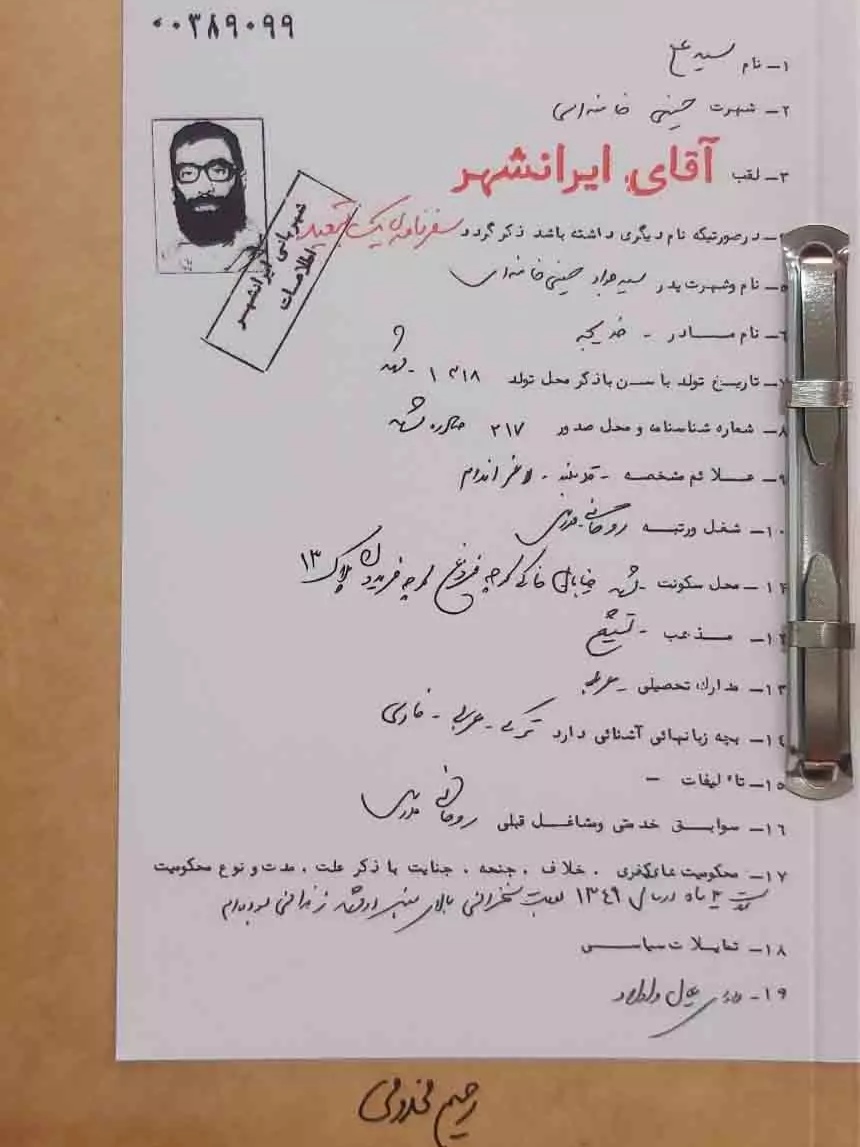 ۰۰۳۸۹۰۹۹
۱- نام سید علی
۲- شهرت حسینی خامنه‌ای
۳- لقب آقای ایرانشهر
در صورتیکه نام دیگری داشته باشد ذکر گردد سفرنامه‌ی یک تبعید
شهربانی ایرانشهر
اطلاعات
۵- نام و شهرت پدر سید جواد حسینی خامنه‌ای
۶- نام مادر - خدیجه
۷- تاریخ تولد یا سن با ذکر محل تولد ۱۳۱۸ - مشهد
۸- شماره شناسنامه و محل صدور ۲۱۷ صادره مشهد
۹- علائم مشخصه - قد بلند - لاغر اندام
۱۰- شغل و رتبه روحانی - مدرس
۱۱- محل سکونت - مشهد خیابان خاکی کوچه فروغ کوچه فریدون پلاک ۱۳
۱۲- مذهب - تشیع
۱۳- مدارک تحصیلی -
۱۴- بچه زبانهائی آشنائی دارد ترکی - عربی - فارسی
۱۵- تاء لیفات -
۱۶- سوابق خدمتی ومشاغل قبلی روحانی مدرس
۱۷- محکومیت های کیفری . خلاف . جنحه . جنایت با ذکر علت . مدت و نوع محکومیت
مدت ۴ ماه در سال ۱۳۴۹ بعلت سخنرانی بالای منبر در مشهد زندانی بوده‌ام
۱۸- تمایلات سیاسی
۱۹-
رحیم مخدومی